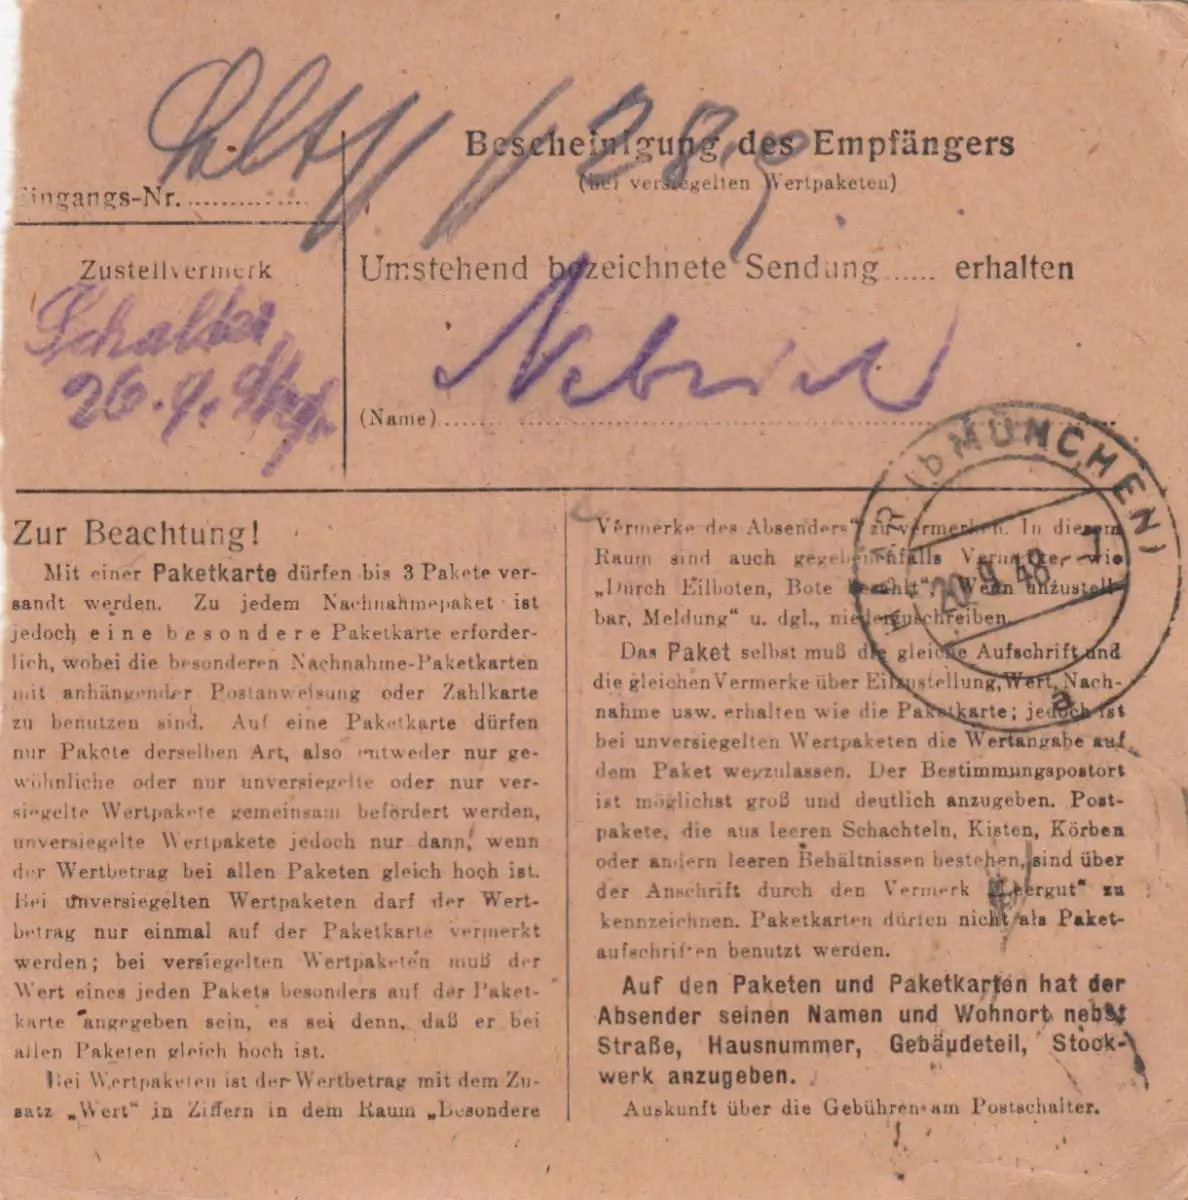 Eingangs-Nr.
Bescheinigung des Empfängers
(bei versiegelten Wertpaketen)
Zustellvermerk
Schalter
26.9.
Umstehend bezeichnete Sendung...... erhalten
(Name)
HAAR (b MÜNCHEN)
20.9.48-7
a
Zur Beachtung!
Mit einer Paketkarte dürfen bis 3 Pakete ver-
sandt werden. Zu jedem Nachnahmepaket ist
jedoch eine besondere Paketkarte erforder-
lich, wobei die besonderen Nachnahme-Paketkarten
mit anhängender Postanweisung oder Zahlkarte
zu benutzen sind. Auf eine Paketkarte dürfen
nur Pakete derselben Art, also entweder nur ge-
wöhnliche oder nur unversiegelte oder nur ver-
siegelte Wertpakete gemeinsam befördert werden,
unversiegelte Wertpakete jedoch nur dann, wenn
der Wertbetrag bei allen Paketen gleich hoch ist.
Bei unversiegelten Wertpaketen darf der Wert-
betrag nur einmal auf der Paketkarte vermerkt
werden; bei versiegelten Wertpaketen muß der
Wert eines jeden Pakets besonders auf der Paket-
karte angegeben sein, es sei denn, daß er bei
allen Paketen gleich hoch ist.
Bei Wertpaketen ist der Wertbetrag mit dem Zu-
satz „Wert“ in Ziffern in dem Raum „Besondere
Vermerke des Absenders“ zu vermerken. In diesem
Raum sind auch gegebenenfalls Vermerke, wie
„Durch Eilboten, Bote bezahlt“, „Wenn unzustell-
bar, Meldung“ u. dgl., niederzuschreiben.
Das Paket selbst muß die gleiche Aufschrift und
die gleichen Vermerke über Eilzustellung, Wert, Nach-
nahme usw. erhalten wie die Paketkarte; jedoch ist
bei unversiegelten Wertpaketen die Wertangabe auf
dem Paket wegzulassen. Der Bestimmungspostort
ist möglichst groß und deutlich anzugeben. Post-
pakete, die aus leeren Schachteln, Kisten, Körben
oder andern leeren Behältnissen bestehen, sind über
der Anschrift durch den Vermerk „Leergut“ zu
kennzeichnen. Paketkarten dürfen nicht als Paket-
aufschriften benutzt werden.
Auf den Paketen und Paketkarten hat der
Absender seinen Namen und Wohnort nebst
Straße, Hausnummer, Gebäudeteil, Stock-
werk anzugeben.
Auskunft über die Gebühren am Postschalter.